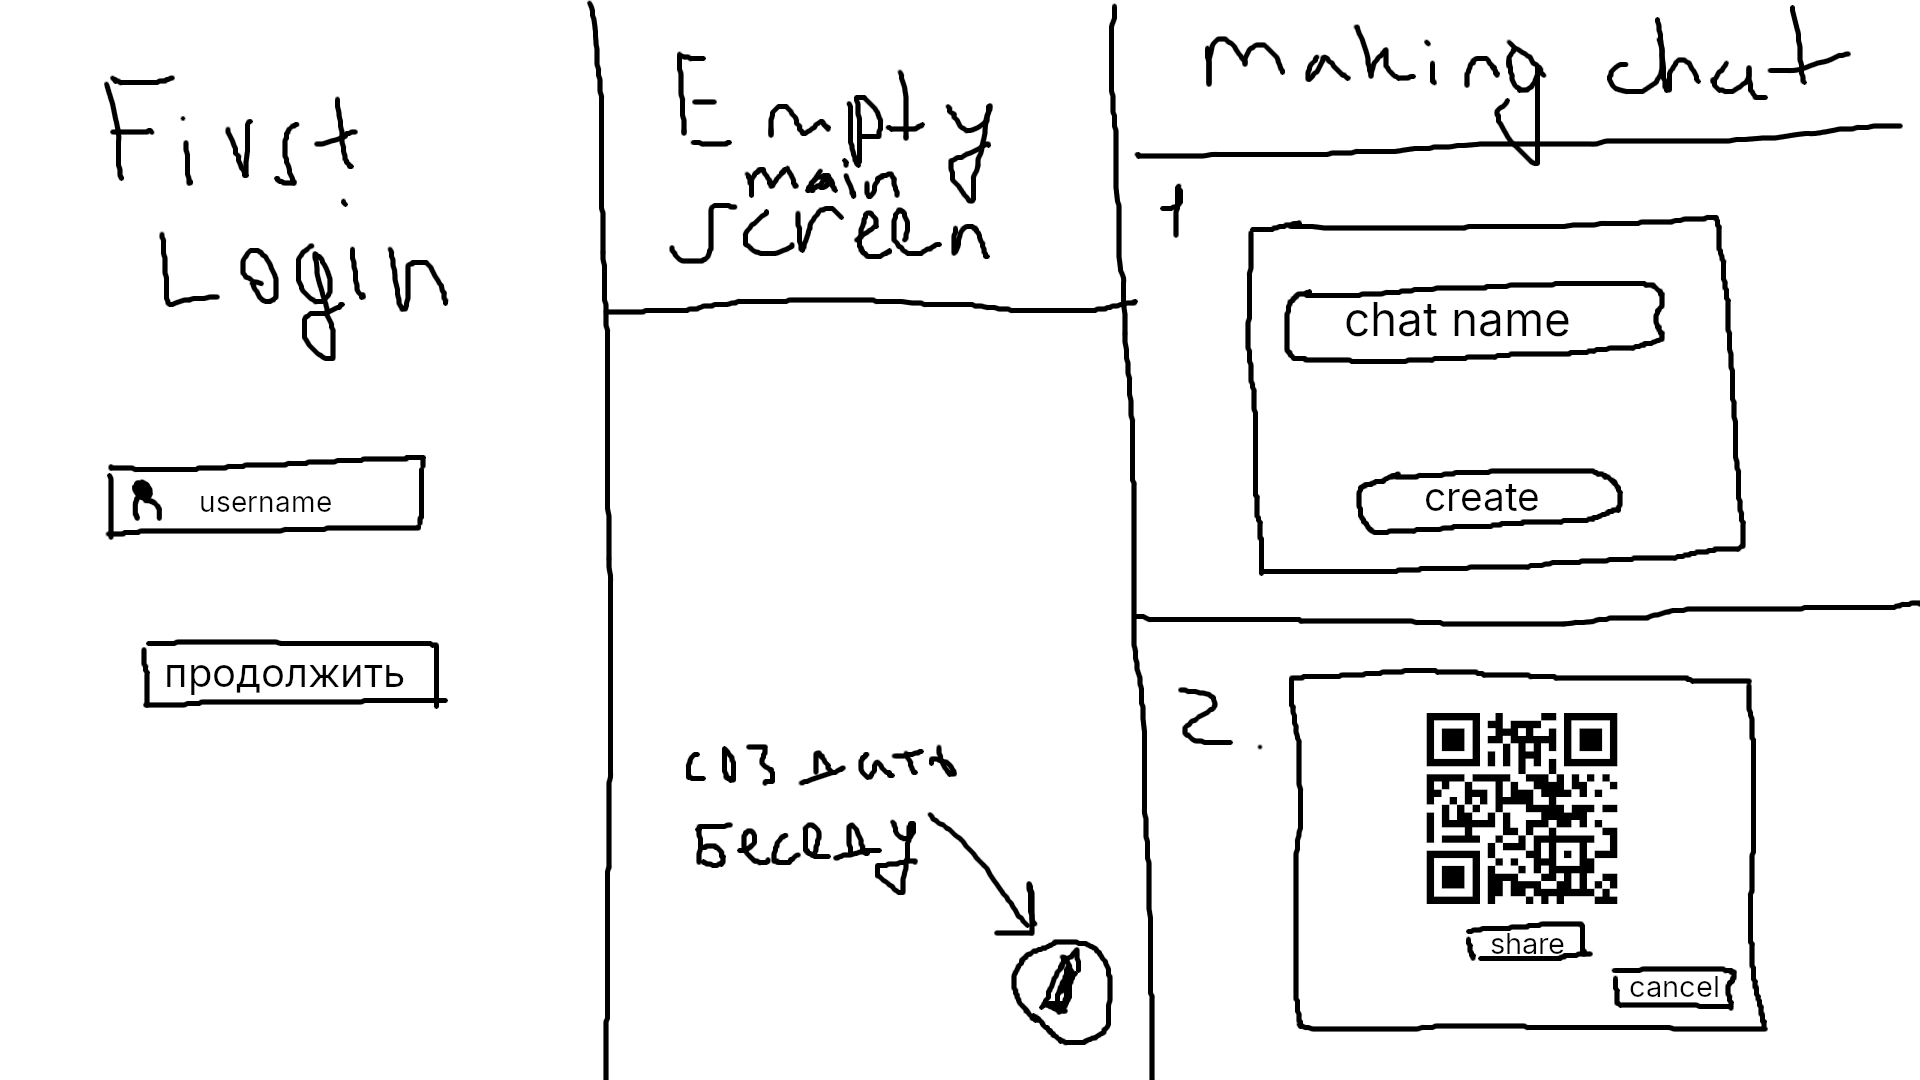 First
Login
username
продолжить
Empty
main
screen
создать
беседу
making chat
1
chat name
create
2.
share
cancel